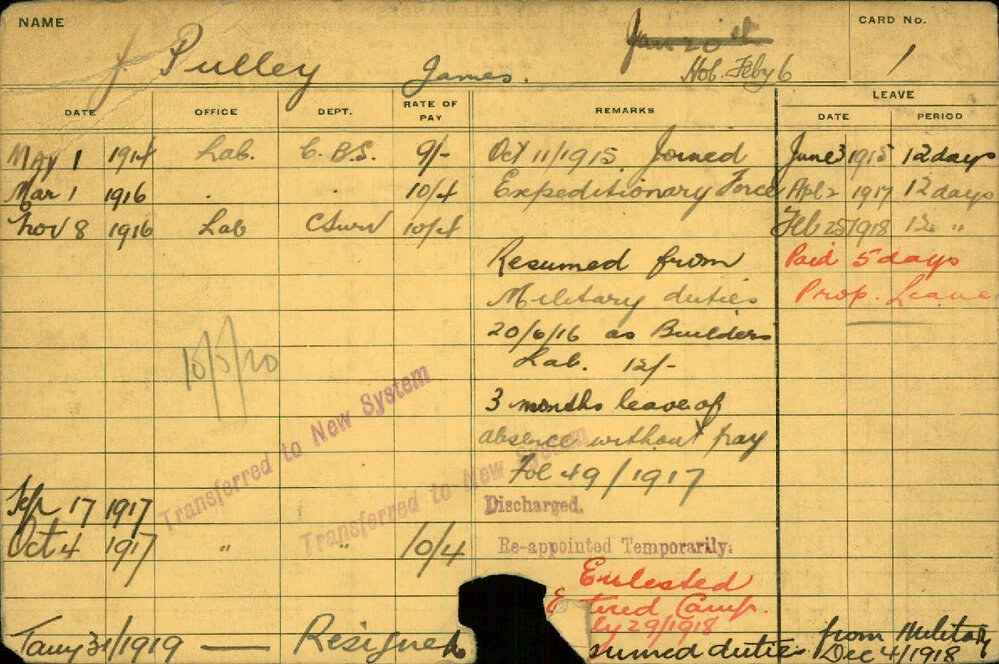 NAME
CARD No.
J. Pulley James.
Jan 20th
Hol. Feby 6
1
LEAVE
DATE OFFICE DEPT. RATE OF PAY REMARKS DATE PERIOD
May 1 1914 Lab. C.B.S. 9/- Oct 11/1915 Joined June 3 1915 12 days
Mar 1 1916 . . 10/4 Expeditionary Force Apl 2 1917 12 days
Nov 8 1916 Lab 10/4 Feb 25/1918 12 "
Resumed from Paid 5 days
Military duties Prop. Leave
20/6/16 as Builders
Lab. 12/-
10/5/20
3 months leave of
absence without pay
Fol 49/1917
Transferred to New System
Transferred to New System
Sep 17 1917 Discharged.
Oct 4 1917 " " 10/4 Re-appointed Temporarily.
Enlisted
Camp.
29/1918
Jany 31/1919 — Resigned
sumed duties from Military
Dec 4/1918